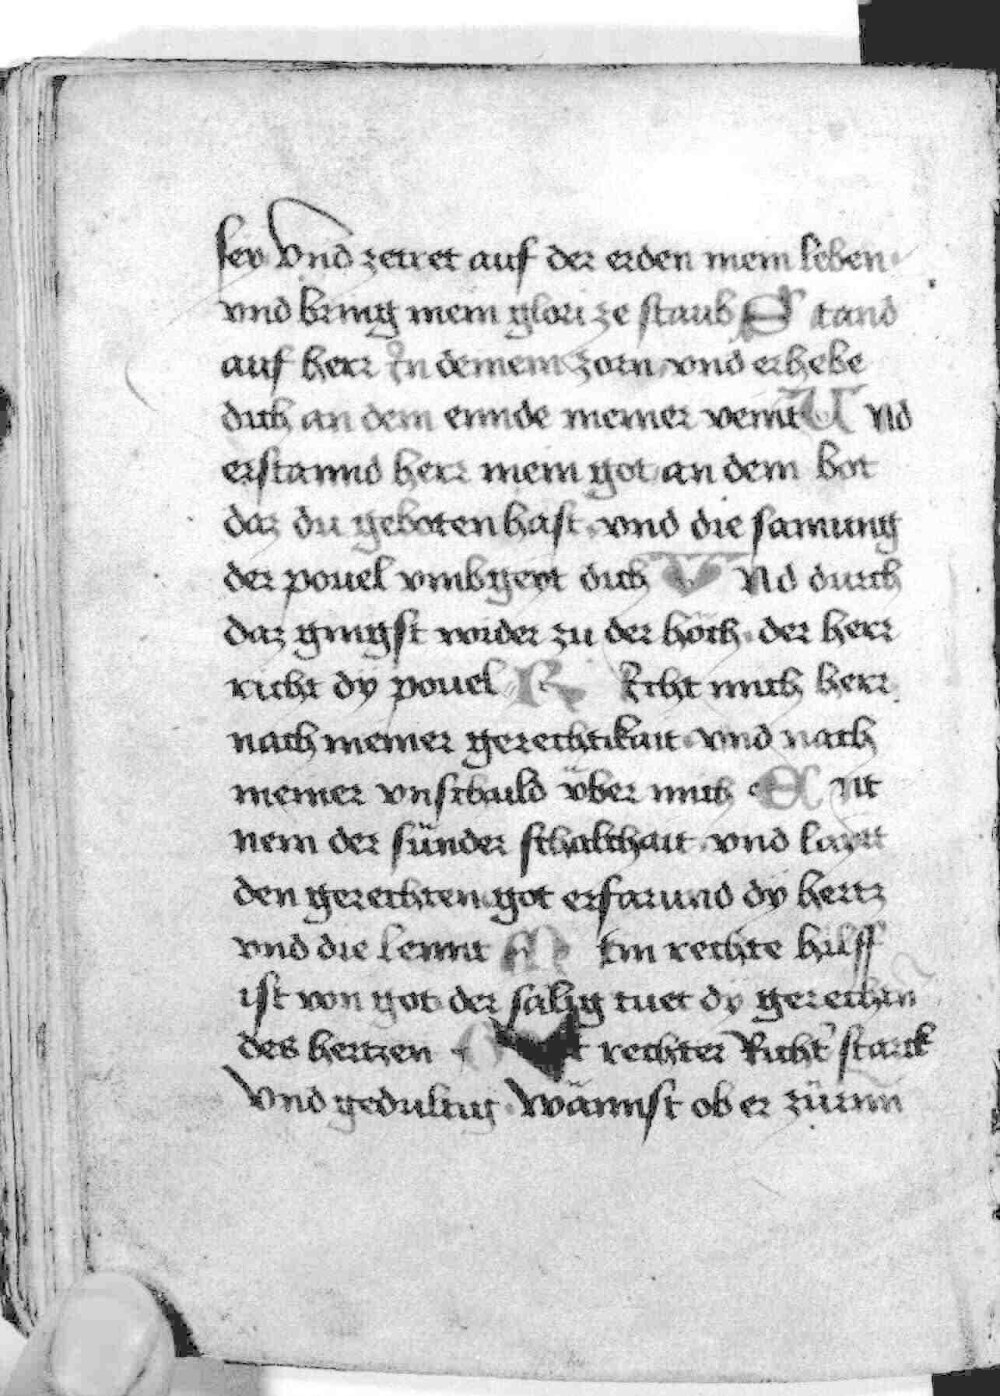 sey Vnd zetret auf der erden mein leben
vnd bring mein glori ze staub S tand
auf herr In deinem zorn vnd erhebe
dich an dem ennde meiner veint U Nd
erstannd herr mein got an dem bot
daz du geboten hast vnd die samung
der pouel vmbgeet dich V Nd durch
daz gingst wider zu der höch der herr
richt dy pouel R Icht mich herr
nach meiner gerechtikait vnd nach
meiner vnschuld über mich E Nt
nem der sünder schalchait vnd layt
den gerechten got erfarund dy hertz
vnd die lennt M Ein rechte hilff
ist von got der sälig tuet dy gerechtn
des hertzen rechter Richt' starck
Vnd gedultig Wännst ob er zürnn